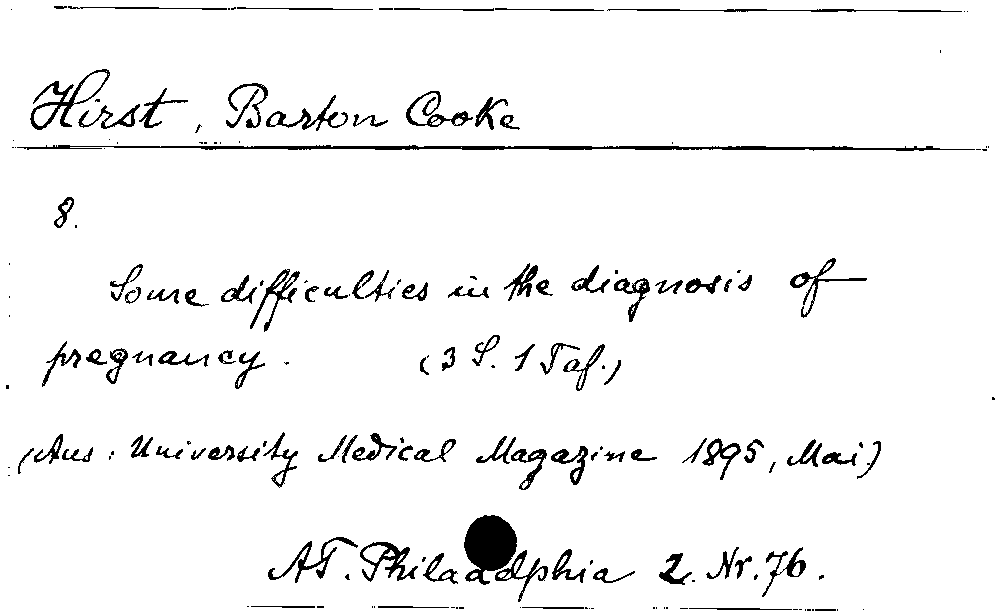 Hirst, Barton Cooke
8.
Some difficulties in the diagnosis of
pregnancy. (3 S. 1 Taf.)
(Aus: University Medical Magazine 1895, Mai)
AT. Philadelphia 2. Nr. 76.